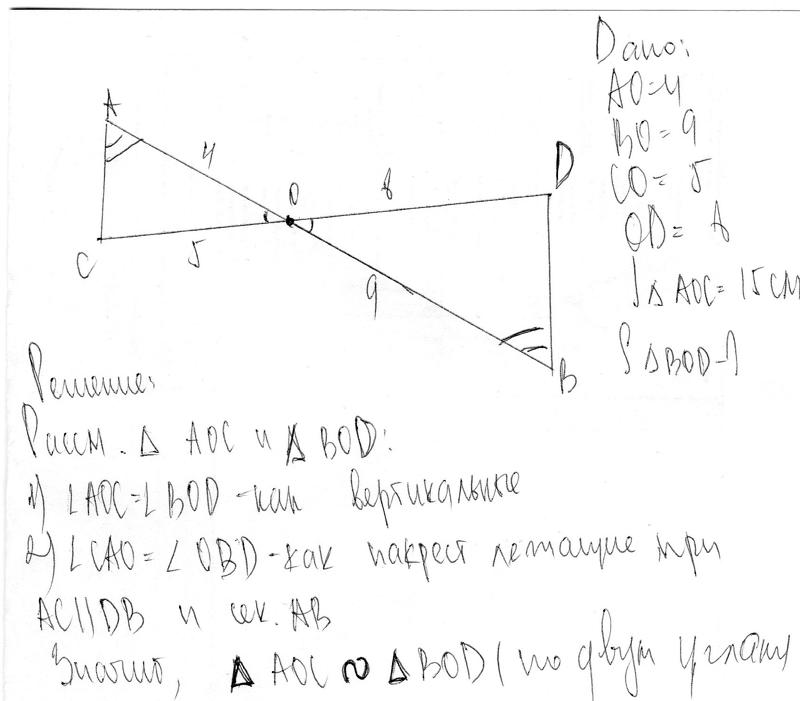 Дано:
A
AO=4
BO=9
4
CO=5
O
8
D
OD=8
C
5
S△AOC=15см
9
S△BOD-?
B
Решение:
Рассм. △ AOC и △BOD:
1) ∠AOC=∠BOD-как вертикальные
2) ∠CAO=∠OBD-как накрест лежащие при
AC||DB и сек. AB
Значит, △ AOC ∾ △BOD (по двум углам